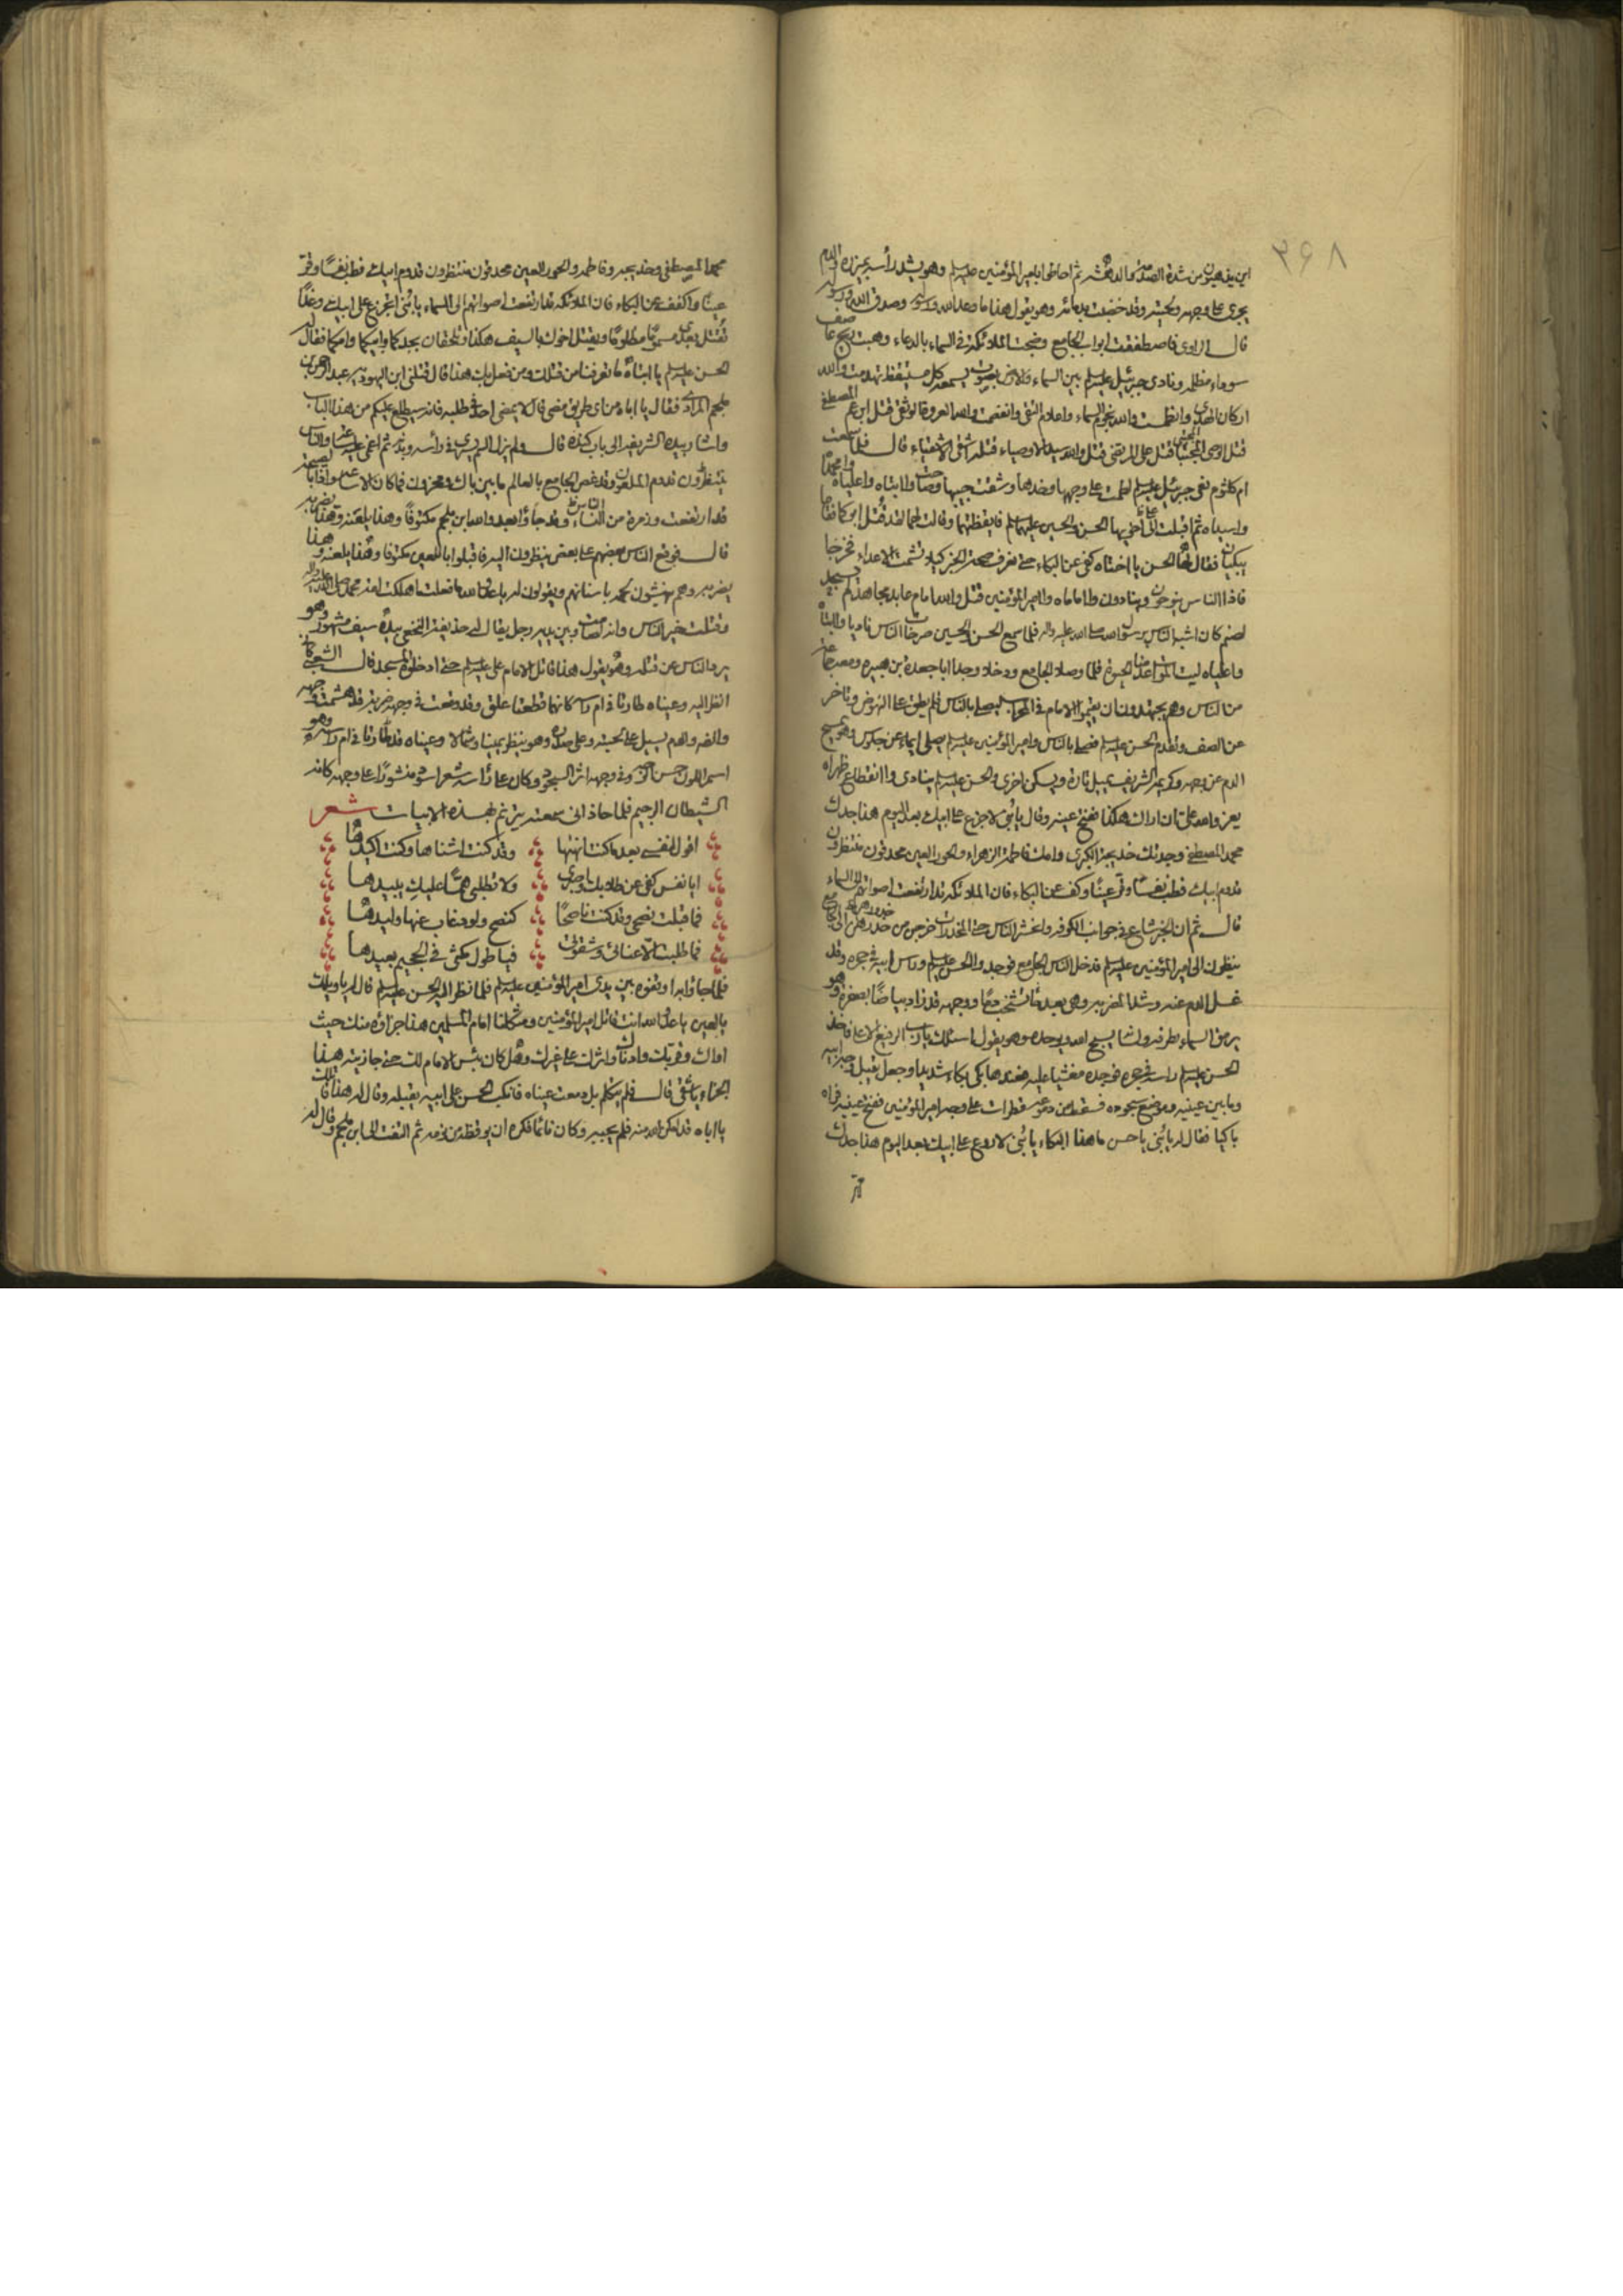 ٣٩٨
اين يذهبون من شدة الصدمة والدهشة ثم احاطوا بامير المؤمنين عليه السلم وهو يشد رأسه بميزره والدم
يجرى على وجهه ولحيته وقد خضبت بدمائه وهو يقول هذا ما وعد الله ورسوله وصدق الله ورسوله
قال الراوى فاصطفقت ابواب الجامع وضجت الملائكة فى السماء بالدعاء وهبت ريح عاصف
سوداء مظلمة ونادى جبرئيل عليه السلم بين السماء والارض بصوت يسمعه كل مستيقظ تهدمت والله
اركان الهدى وانطمست والله نجوم السماء واعلام التقى وانفصمت والله العروة الوثقى قتل ابن عم المصطفى
قتل الوصى المجتبى قتل على المرتضى قتل والله سيد الاوصياء قتله اشقى الاشقياء قال فلما سمعت
ام كلثوم نعى جبرئيل عليه السلم لطمت على وجهها وخدها وشقت جيبها وصاحت وا ابتاه واعلياه وا محمداه
واسيداه ثم اقبلت الى اخويها الحسن والحسين عليهما السلم فايقظتهما وقالت لهما لقد قتل ابوكما فقاما
يبكيان فقال لها الحسن يا اختاه كفى عن البكاء حتى نعرف صحة الخبر كيلا تشمت الاعداء فخرجا
فاذا الناس ينوحون وينادون وا اماماه وا امير المؤمنين قتل والله امام عابد مجاهد لم يسجد
لصنم كان اشبه الناس برسول الله صلى الله عليه واله فلما سمع الحسن والحسين صرخات الناس ناديا وا ابتاه
واعلياه ليت الموت اعدمنا الحيوة فلما وصلا الجامع ودخلا وجدا ابا جعدة بن هبيرة ومعه جماعة
من الناس وهم يجتهدون ان يقيموا الامام فى المحراب ليصلى بالناس فلم يطق على النهوض وتاخر
عن الصف وتقدم الحسن عليه السلم فصلى بالناس وامير المؤمنين عليه السلم يصلى ايماء عن جلوس وهو يمسح
الدم عن وجهه وكريمه الشريف يميل تارة ويسكن اخرى والحسن عليه السلم ينادى وا انقطاع ظهراه
يعز والله على ان اراك هكذا ففتح عينيه وقال يا بنى لا جزع على ابيك بعد اليوم هذا جدك
محمد المصطفى وجدتك خديجة الكبرى وامك فاطمة الزهراء والحور العين محدقون منتظرون
قدوم ابيك فطب نفسا وقر عينا وكف عن البكاء فان الملائكة قد ارتفعت اصواتهم الى السماء
قال ثم ان الخبر شاع فى جوانب الكوفة وانحشر الناس حتى المخدرات خرجن من خدرهن الى الجامع
ينظرون الى امير المؤمنين عليه السلم فدخل الناس الجامع فوجدوا الحسن عليه السلم وراس ابيه فى حجره وقد
غسل الدم عنه وشد الضربة وهى بعدها تشخب دما ووجهه قد زاد بياضا بصفرة وهو
يرمق السماء بطرفه ولسانه يسبح الله ويوحده وهو يقول اسئلك يا رب الرفيع الاعلى فاخذ
الحسن عليه السلم راسه فى حجره فوجده مغشيا عليه فعندها بكى بكاء شديدا وجعل يقبل وجه ابيه
وما بين عينيه وموضع سجوده فسقط من دموعه قطرات على وجه امير المؤمنين ففتح عينيه فراه
باكيا فقال له يا بنى يا حسن ما هذا البكاء يا بنى لا روع على ابيك بعد اليوم هذا جدك
محمد المصطفى وخديجة وفاطمة والحور العين محدقون منتظرون قدوم ابيك فطب نفسا وقر
عينا واكفف عن البكاء فان الملائكة قد ارتفعت اصواتهم الى السماء يا بنى اتجزع على ابيك وغدا
تقتل بعدى مسموما مظلوما ويقتل اخوك بالسيف هكذا وتلحقان بجدكما وابيكما وامكما فقال له
الحسن عليه السلم يا ابتاه ما تعرفنا من قتلك ومن فعل بك هذا قال قتلنى ابن اليهودية عبد الرحمن بن
ملجم المرادى فقال يا اباه من اى طريق مضى قال لا يمضى احد فى طلبه فانه سيطلع عليكم من هذا الباب
واشار بيده الشريفة الى باب كندة قال ولم يزل السم يسرى فى رأسه وبدنه ثم اغمى عليه ساعة والناس
ينتظرون قدوم الملعون وقد غص الجامع بالعالم ما بين باك ومحزون فما كان الا ساعة واذا بالصيحة
قد ارتفعت وزمرة من الناس وقد جاؤا بعدو الله ابن ملجم مكتوفا وهذا يلعنه وهذا يضربه
قال فوقع الناس بعضهم على بعض ينظرون اليه فاقبلوا باللعين مكتوفا وهذا يلعنه وهذا
يضربه وهم ينهشون لحمه باسنانهم ويقولون له يا عدو الله ما فعلت اهلكت امة محمد صلى الله عليه واله
وقتلت خير الناس وانه لصامت وبين يديه رجل يقال له حذيفة النخعى بيده سيف مشهور وهو
يرد الناس عن قتله وهو يقول هذا قاتل الامام على عليه السلم حتى ادخلوه المسجد قال الشعبى كانى
انظر اليه وعيناه طارتا فى ام راسه كانهما قطعتا علق وقد وقعت فى وجهه ضربة قد هشمت وجهه
وانفه والدم يسيل على لحيته وعلى صدره وهو ينظر يمينا وشمالا وعيناه قد طارتا فى ام راسه وهو
اسمر اللون حسن الوجه وفى وجهه اثر السجود وكان على رأسه شعر اسود منشورا على وجهه كانه
الشيطان الرجيم فلما حاذانى سمعته يترنم بهذه الابيات شعر
اقول لنفسى بعد ما كنت انهها وقد كنت اشناها وكنت اكيدها
ايا نفس كفى عن طلابك واصبرى ولا تطلبى هما عليك يبيدها
فما قبلت نصحى وقد كنت ناصحا كنصح ولود غاب عنها وليدها
فما طلبت الا عنائى وشقوتى فيا طول مكثى فى الجحيم بعيدها
فلما جاؤا به اوقفوه بين يدى امير المؤمنين عليه السلم فلما نظر اليه الحسن عليه السلم قال له يا ويلك
يا لعين يا عدو الله انت قاتل امير المؤمنين ومثكلنا امام المسلمين هذا جزاؤه منك حيث
اواك وقربك وادناك واثرك على غيرك وهل كان بئس الامام لك حتى جازيته هذا
الجزاء يا شقى قال فلم يتكلم بل دمعت عيناه فانكب الحسن على ابيه يقبله وقال له هذا قاتلك
يا اباه قد امكن الله منه فلم يجيبه وكان نائما فكره ان يوقظه من نومه ثم التفت الى ابن ملجم وقال له